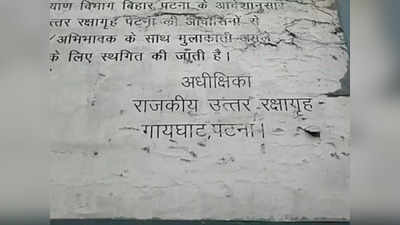 याण विभाग बिहार पटना के आदेशानुसार
उत्तर रक्षागृह पटना की आवासिनों से
/अभिभावक के साथ मुलाकाती अगले
के लिए स्थगित की जाती है।
अधीक्षिका
राजकीय उत्तर रक्षागृह
गायघाट,पटना।